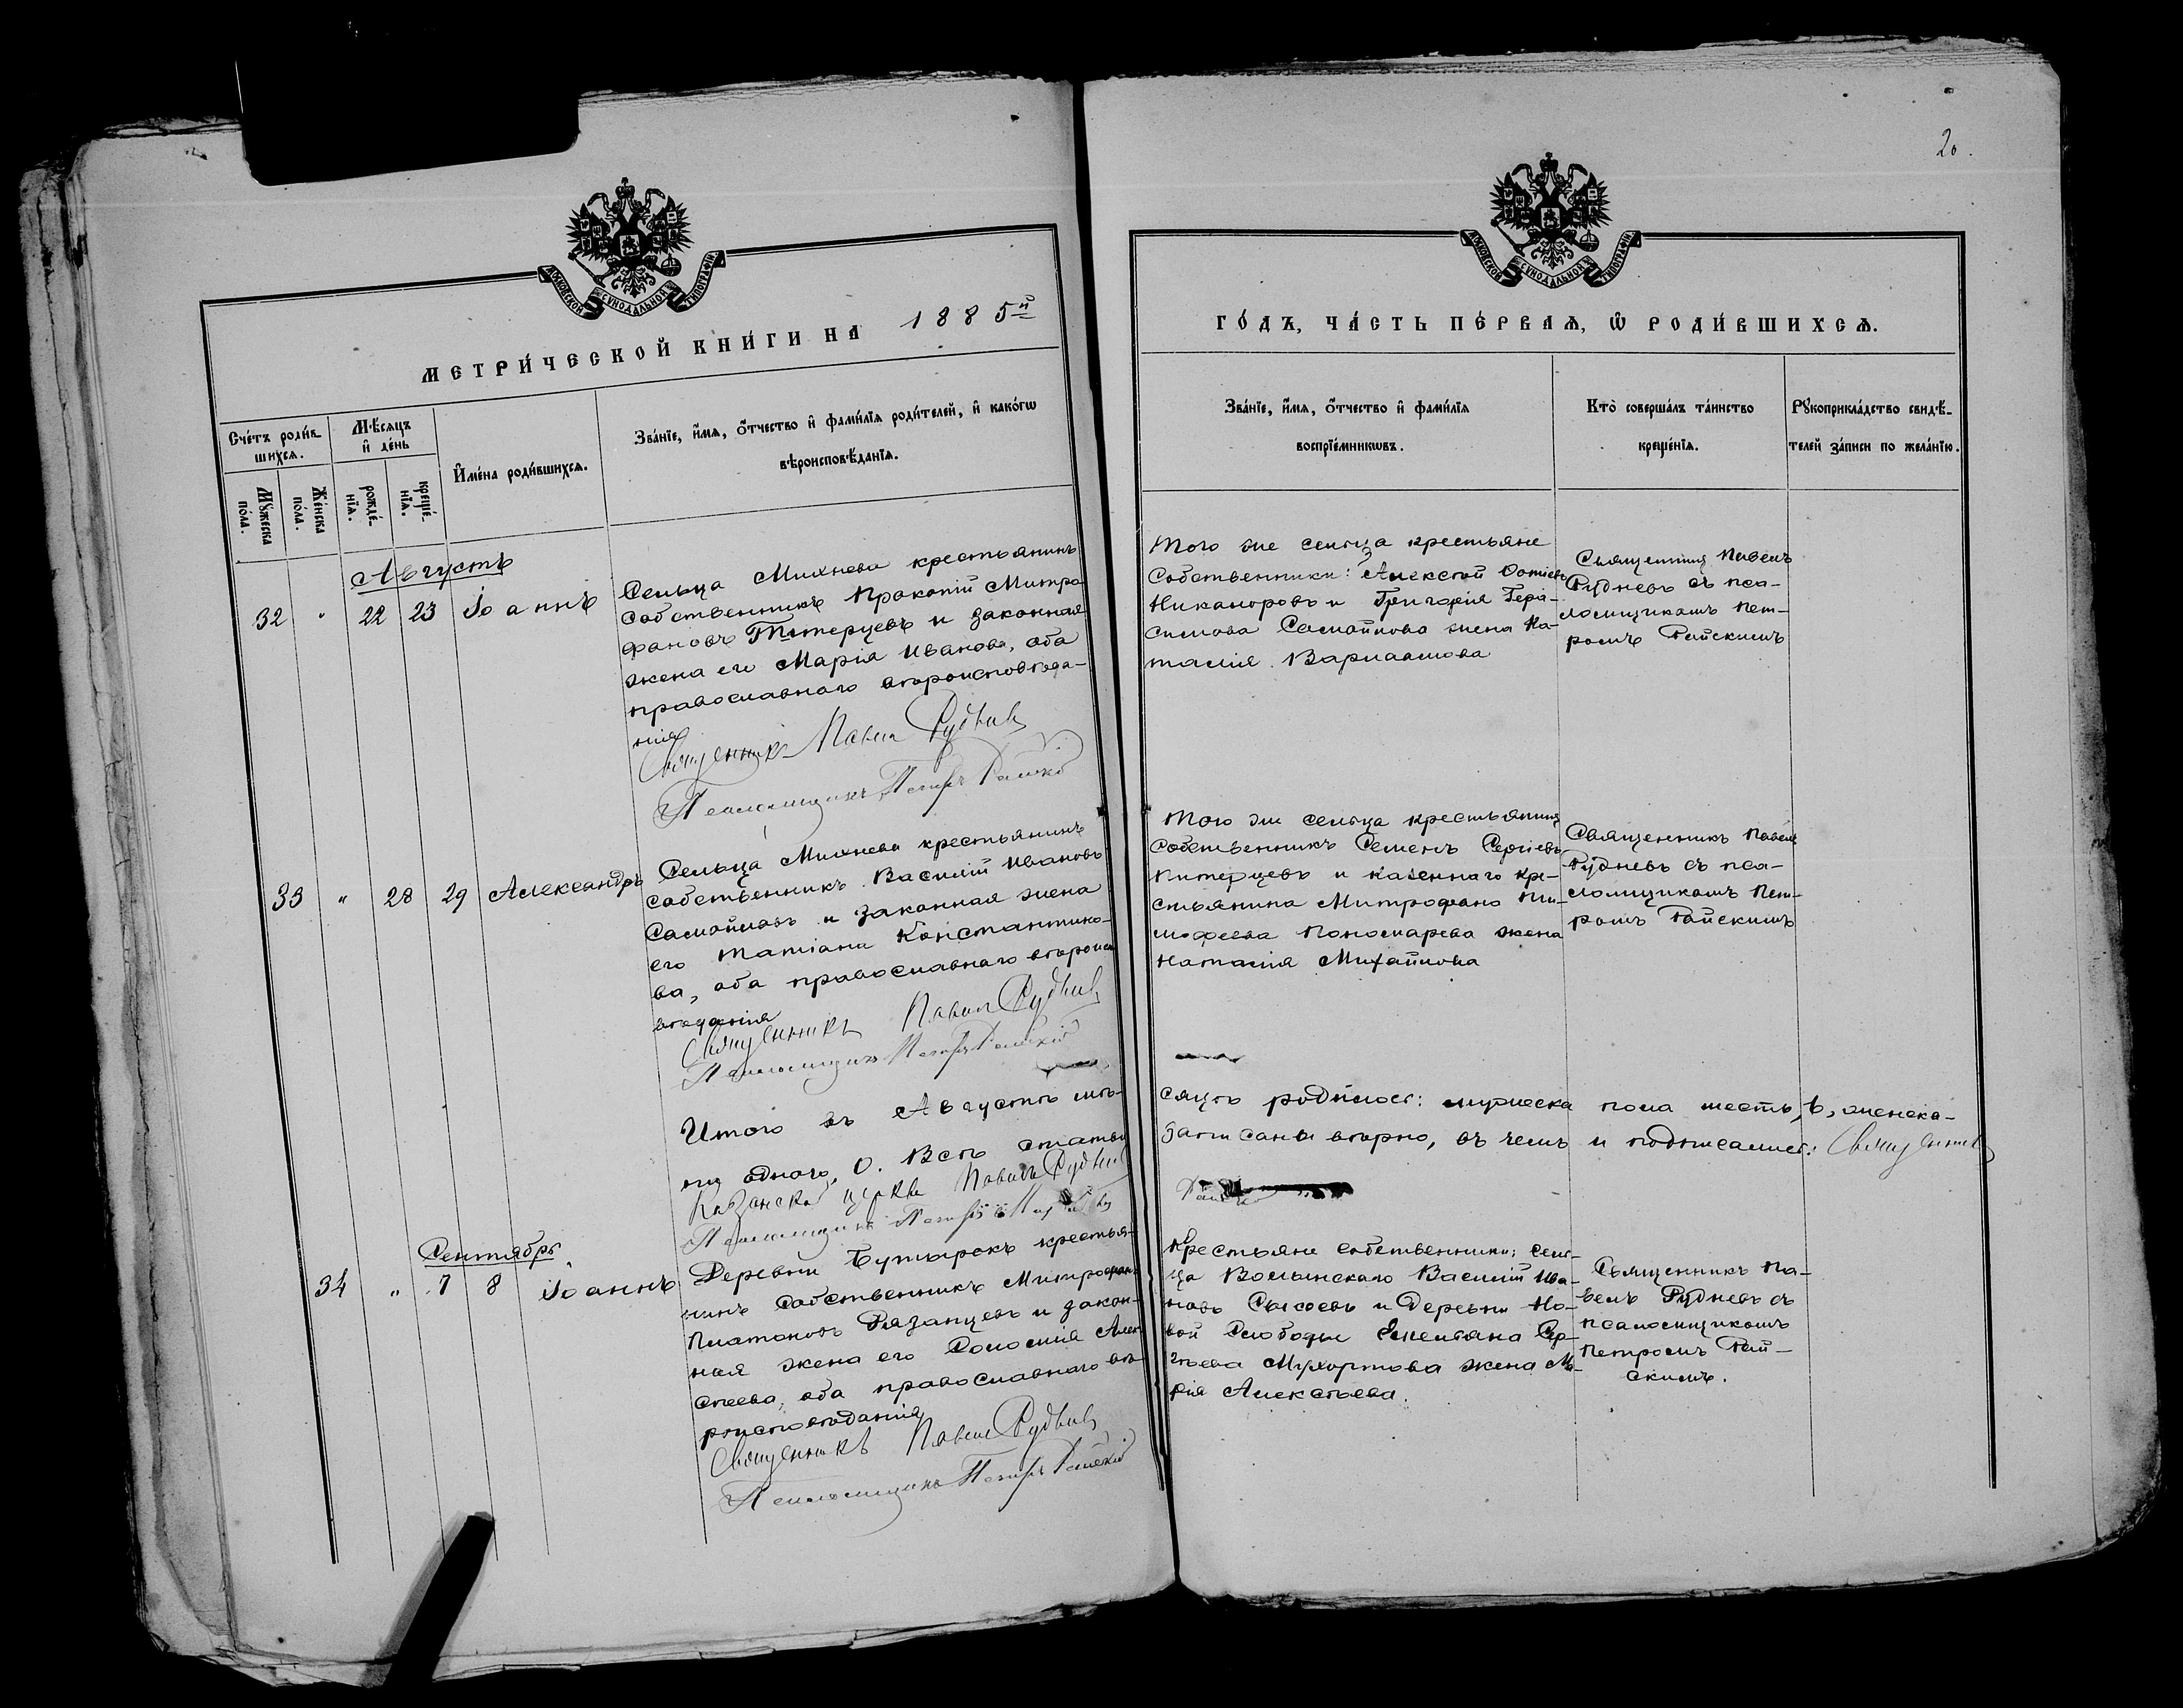 20.
МОСКОВСКОЙ СУНОДАЛЬНОЙ ТИПОГРАФІИ
МЕТРИ́ЧЕСКОЙ КНИ́ГИ НА 1885й
Счетъ роди́вшихся.
Мѣсяцъ и҆ де́нь
И҆мена̀ роди́вшихся.
Зва́нїе, и҆́мя, ѻ҆́тчество и҆ фами́лїя роди́телей, и҆ како́гѡ
вѣроисповѣ́данїя.
Мꙋ́жеска по́ла.
Же́нска по́ла.
рожде́нїя.
креще́нїя.
Августъ
32 " 22 23 Іоаннъ
Сельца Михнева крестьянинъ
собственникъ Прокопій Митро-
фановъ Питерцевъ и законная
жена его Марія Иванова, оба
православнаго вѣроисповѣда-
нія
Священникъ Павелъ Рудневъ
Псаломщикъ Петръ Райскій
33 " 28 29 Александръ
Сельца Михнева крестьянинъ
собственникъ Василій Ивановъ
Самойловъ и законная жена
его Татіана Константино-
ва, оба православнаго вѣроиспо
вѣданія
Священникъ Павелъ Рудневъ
Псаломщикъ Петръ Райскій
Итого въ Августѣ мѣ-
го одного, 0. Всѣ статьи
Казанской церкви Павелъ Рудневъ
Псаломщикъ Петръ
Сентябрь
34 " 7 8 Іоаннъ
Деревни Бутырокъ крестья-
нинъ собственникъ Митрофанъ
Платоновъ Рязанцевъ и закон-
ная жена его Соломія Алек-
сѣева, оба православнаго вѣ-
роисповѣданія
Священникъ Павелъ Рудневъ
Псаломщикъ Петръ Райскій
МОСКОВСКОЙ СУНОДАЛЬНОЙ ТИПОГРАФІИ
ГО́ДЪ, ЧА́СТЬ ПЕ́РВАЯ, Ѡ҆ РОДИ́ВШИХСЯ.
Зва́нїе, и҆́мя, ѻ҆́тчество и҆ фами́лїя
воспрїе́мникѡвъ.
Кто̀ соверша́лъ та́инство
креще́нїя.
Рꙋкоприкла́дство свидѣ́-
телей за́писи по жела́нїю.
Того же сельца крестьяне
собственники: Алексѣй
Никаноровъ и Григорія Гера-
симова Самойлова жена На-
талія Варлаамова
Священникъ Павелъ
Рудневъ съ пса-
ломщикомъ Пет-
ромъ Райскимъ
Того же сельца крестьянинъ
собственникъ Семенъ Сергіевъ
Питерцевъ и казеннаго кре-
стьянина Митрофана Ти-
мофеева Пономарева жена
Наталія Михайлова
Священникъ Павелъ
Рудневъ съ пса-
ломщикомъ Пет-
ромъ Райскимъ
сяцѣ родилось: мужеска пола шесть, 6, женска-
записаны вѣрно, въ чемъ и подписались: Священникъ
Крестьяне собственники; сель-
ца Волынскаго Василій Ива-
новъ Сысоевъ и деревни Но-
вой Слободы Емеліана Сер-
гѣева Мухортова жена Ма-
рія Алексѣева.
Священникъ Па-
велъ Рудневъ съ
псаломщикомъ
Петромъ Рай-
скимъ.